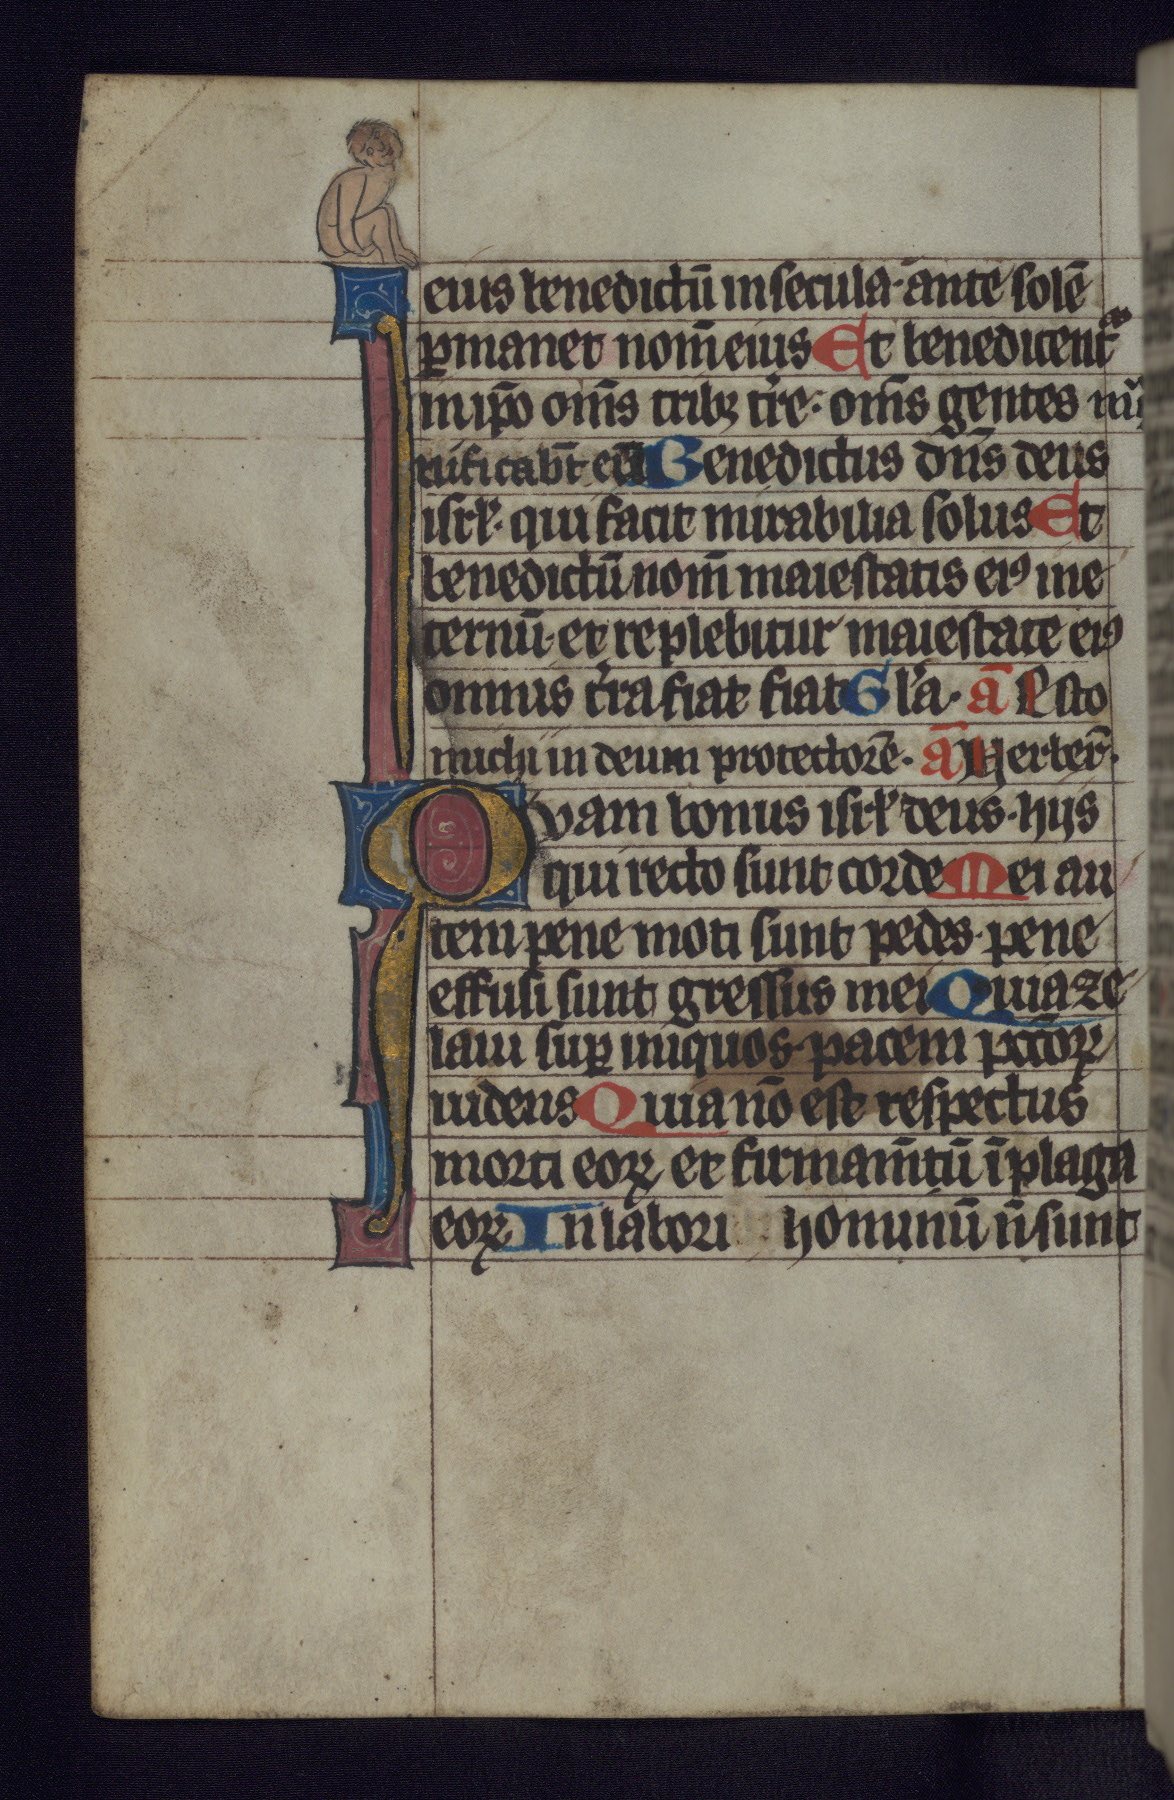 eius benedictū in secula· ante solē
ꝑmanet nom̄ eius Et benedicent᷑
in ip̄o om̄s tribꝫ tr̄e· om̄s gentes
nificabt̄ eū Benedictus dn̄s deus
isrl̄· qui facit mirabilia solus Et
benedictū nom̄ maiestatis eiꝰ in e
ternū· et replebitur maiestate eiꝰ
omnis tr̄ra fiat fiat Gl̄a· a᷑ Esto
michi in deum protectorē· ā
Quam bonus isrl̄ deus· hijs
qui recto sunt corde Mei au
tem pene moti sunt pedes· pene
effusi sunt gressus mei Quia ze
laui suꝑ iniquos· pacem pcc̄oꝝ
uidens Quia nō est respectus
morti eoꝝ et firmam̄tū ī plaga
eoꝝ In labori hominū n̄ sunt